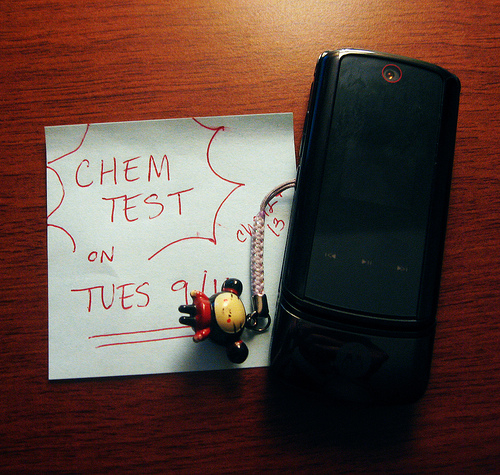 CHEM
TEST
ON
TUES 9/1
13